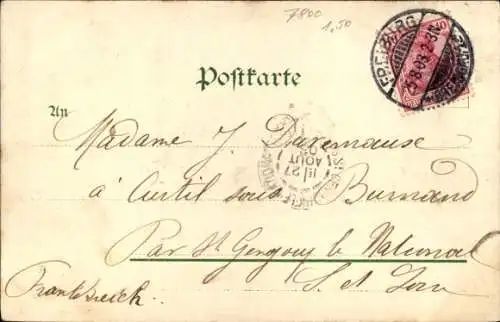 7800
1,50
FREIBURG
25.8.03.2-3N.
Postkarte
An
Madame J. Duremause
à Curtil sous Burnand
Par St Gengoux le National
S. et Loire
Frankreich.
27
AOUT
03